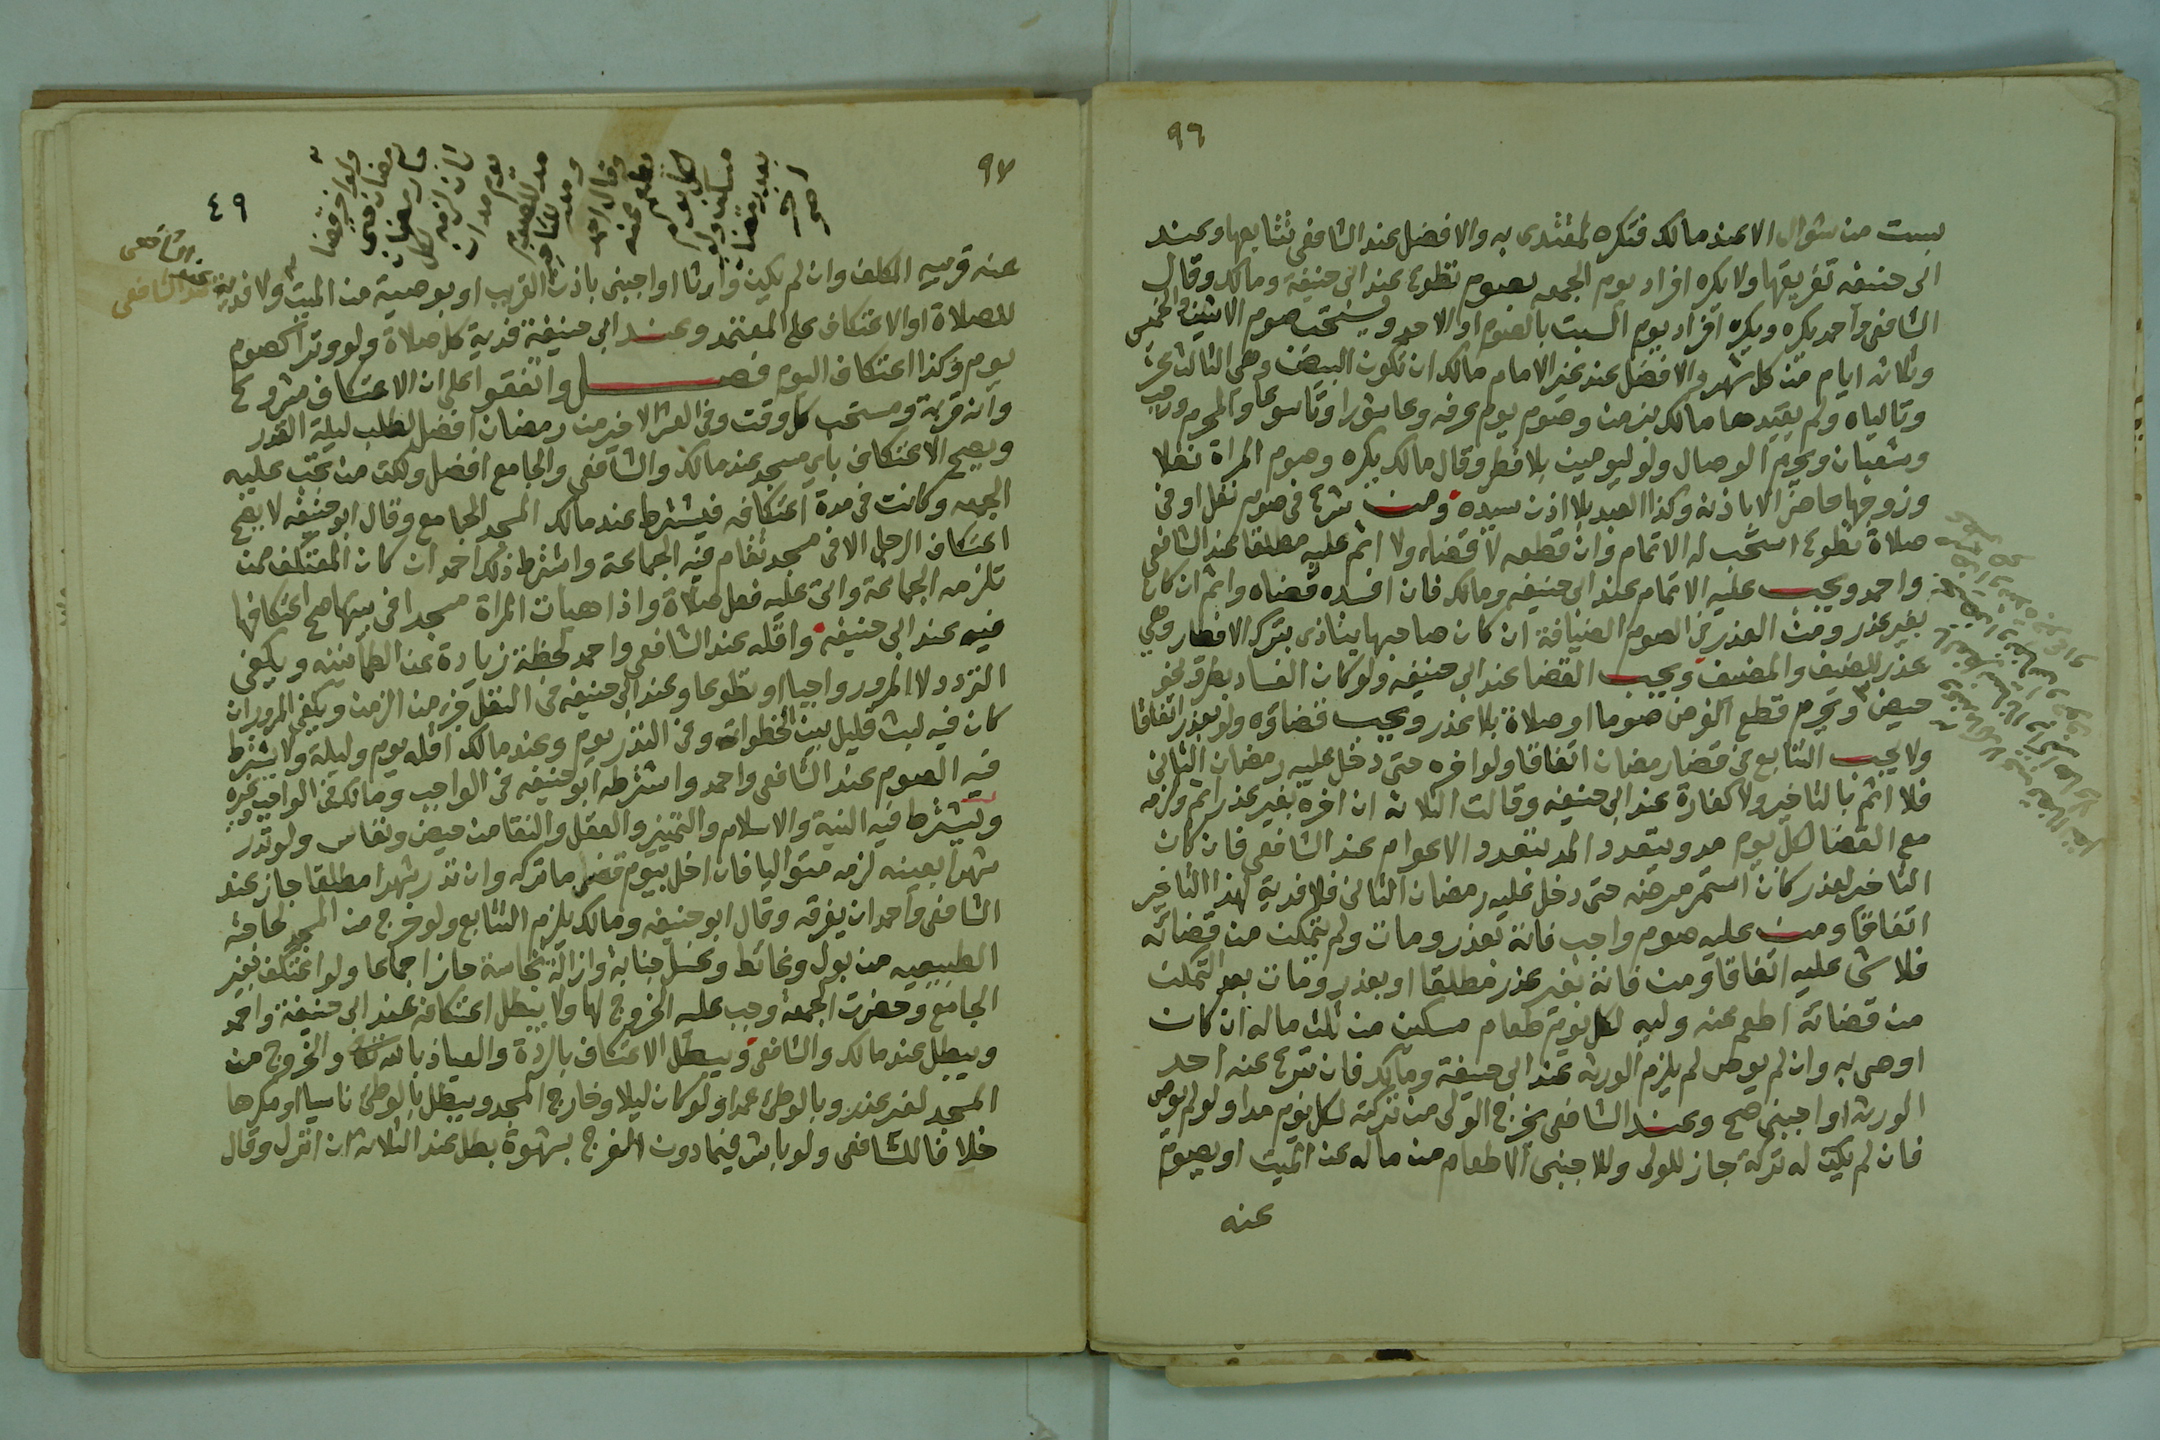 ٩٦
بست من شوال الا عند مالك فتكره لمقتدى به والافضل عند الشافعى تتابعها وعند
ابى حنيفه تفريقها ولا يكره افراد يوم الجمعه بصوم تطوع عند ابى حنيفة ومالك وقال
الشافعى وأحمد يكره ويكره افراد يوم السبت بالصوم او الاحد ويستحب صوم الاثنين والخميس
وثلاثه ايام من كل شهر والافضل عند غير الامام مالك ان تكون البيض وهى الثالث عشر
وتالياه ولم يقيدها مالك بزمن وصوم يوم عرفه وعاشورا وتاسوعا والمحرم ورجب
وشعبان ويحرم الوصال ولو ليومين بلا فطر وقال مالك يكره وصوم المراة نفلا
وزوجها حاضر الا باذنه وكذا العبد بلا اذن سيده ومن شرع فى صوم نفل او فى
صلاة تطوع استحب له الاتمام وان قطعه لا قضاء ولا اثم عليه مطلقا عند الشافعى
واحمد ويجب عليه الاتمام عند ابى حنيفه ومالك فان افسده قضاه واثم ان كان
بغير عذر ومن العذر فى الصوم الضيافة ان كان صاحبها يتاذى بترك الافطار وهى
عذر للضيف والمضيف ويجب القضا عند ابى حنيفه ولو كان الفساد بطرو نحو
حيض ويحرم قطع الفرض صوما او صلاة بلا عذر ويجب قضاؤه ولو بعذر اتفاقا
ولا يجب التتابع فى قضا رمضان اتفاقا ولو اخره حتى دخل عليه رمضان الثانى
فلا اثم بالتاخير ولا كفارة عند ابى حنيفه وقالت الثلاثه ان اخره بغير عذر اثم ولزمه
مع القضا لكل يوم مد ويتعدد المد بتعدد الاعوام عند الشافعى فان كان
التاخير لعذر كان استمر مرضه حتى دخل عليه رمضان الثانى فلا فدية لهذا التاخير
اتفاقا ومن عليه صوم واجب فاته بعذر ومات ولم يتمكن من قضائه
فلا شى عليه اتفاقا ومن فاته بغير عذر مطلقا او بعذر ومات بعد التمكن
من قضائه اطعم عنه وليه لكل يوم طعام مسكين من ثلث ماله ان كان
اوصى به وان لم يوص لم يلزم الورثه عند ابى حنيفة ومالك فان تبرع عنه احد
الورثه او اجنبى صح وعند الشافعى يخرج الولى من تركته لكل يوم مدا ولو لم يوص
فان لم يكن له تركة جاز للولى وللاجنبى الاطعام من ماله عن الميت او يصوم
عنه
٩٧
٤٩
ولو اخر قضا
رمضان حتى
مات رمضان
ثان لزمه لكل
يوم مدان
مد للصوم
ومد للتاخير
وقال احمد
يطعم عنه
لكل يوم
مسكين
عنه قريبه المكلف وان لم يكن وارثا او اجنبى باذن القريب او بوصية من الميت ولا فدية
عند الشافعى
للصلاة او الاعتكاف على المعتمد وعند ابى حنيفة فدية كل صلاة ولو وترا كصوم
يوم وكذا اعتكاف اليوم فصل واتفقوا على ان الاعتكاف مشروع
وانه قربة ومستحب كل وقت وفى العشر الاخير من رمضان افضل لطلب ليلة القدر
ويصح الاعتكاف باى مسجد عند مالك والشافعى والجامع افضل ولكن من تجب عليه
الجمعه وكانت فى مدة اعتكافه فيشترط عند مالك المسجد الجامع وقال ابو حنيفه لا يصح
اعتكاف الرجل الا فى مسجد تقام فيه الجماعة واشترط ذلك احمد ان كان المعتكف ممن
تلزمه الجماعة واتى عليه فعل صلاة واذا هيات المراة مسجدا فى بيتها صح اعتكافها
فيه عند ابى حنيفه واقله عند الشافعى واحمد لحظة زيادة عن الطمأنينه ويكفى
التردد لا المرور واجبا او تطوعا وعند ابى حنيفه فى النفل جزء من الزمن ويكفى المرور ان
كان فيه لبث قليل بين الخطوات وفى النذر يوم وعند مالك اقله يوم وليلة ولا يشترط
فيه الصوم عند الشافعى واحمد واشترطه ابو حنيفه فى الواجب ومالك فى الواجب وغيره
ويشترط فيه النية والاسلام والتمييز والعقل والنقا من حيض ونفاس ولو نذر
شهرا بعينه لزمه متواليا فان اخل بيوم قضى ما تركه وان نذر شهرا مطلقا جاز عند
الشافعى وأحمد ان يفرقه وقال ابو حنيفه ومالك يلزم التتابع ولو خرج من المسجد لحاجته
الطبيعيه من بول وغائط وغسل جنابة وازالة نجاسة جاز اجماعا ولو اعتكف بغير
الجامع وحضرت الجمعة وجب عليه الخروج لها ولا يبطل اعتكافه عند ابى حنيفة واحمد
ويبطل عند مالك والشافعى ويبطل الاعتكاف بالردة والعياذ بالله تعالى والخروج من
المسجد لغير عذر وبالوطئ عمدا ولو كان ليلا وخارج المسجد ويبطل بالوطئ ناسيا او مكرها
خلافا للشافعى ولو باشر فيما دون الفرج بشهوة بطل عند الثلاثه ان انزل وقال